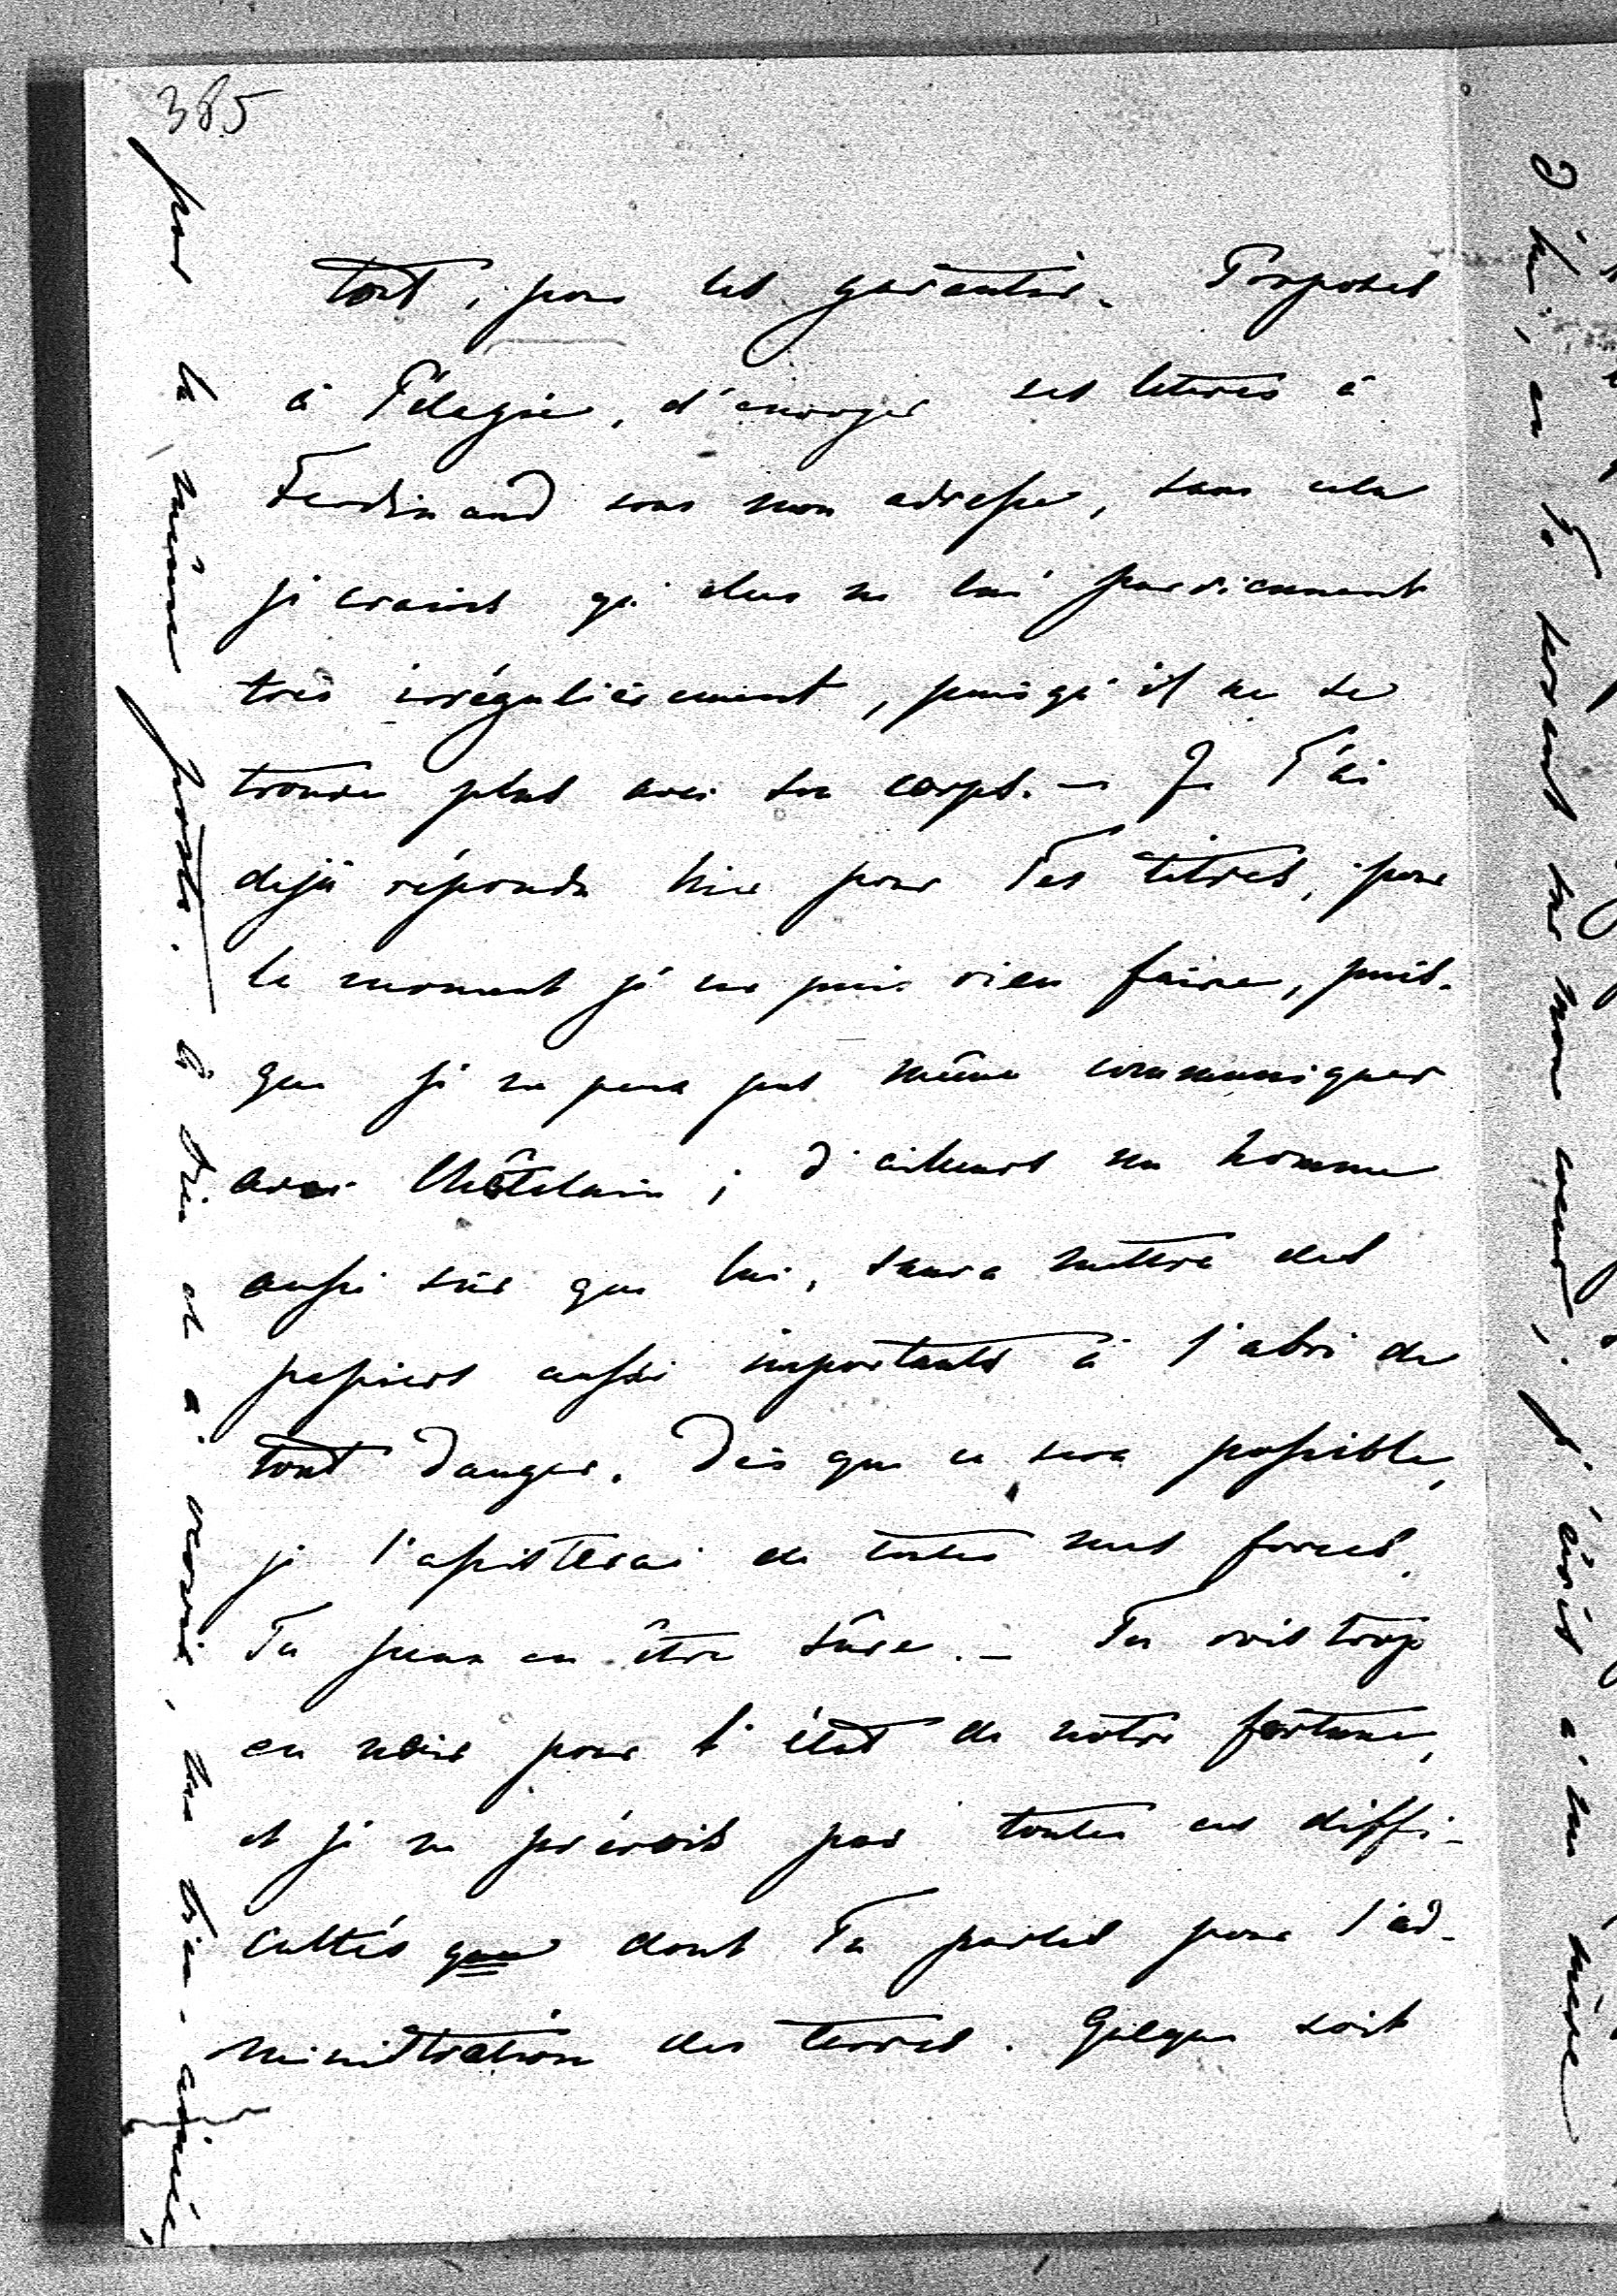 385
tout, pour les garantir. Proposes
à Pélagie, d'envoyer ses lettres à
Ferdinand sous mon adresse, sans cela
je crains qu'elles ne lui parviennent
très irrégulièrement, puisqu'il ne se
trouve plus avec son corps. — Je T'ai
dejà répondu hier pour Tes titres, pour
le moment je ne puis rien faire, puis-
que je ne peux pas même communiquer
avec Châtelain ; d'ailleurs un homme
aussi sûr que lui, saura mettre des
papiers aussi importants à l'abri de
tout danger. Dès que ce sera possible,
je l'assisterai de toutes mes forces.
Tu peux en être sûre. — Tu vois trop
en noir pour l'état de notre fortune,
et je ne prévois pas toutes ces diffi-
cultés que dont Tu parles pour l'ad-
ministration des terres. Quelque soit
par la même poste. à Dieu et à revoir, ma bien-aimée,
d'hui, en Te serrant sur mon coeur ; j'écris à ma mère